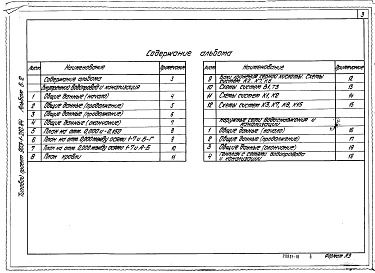 3
Содержание альбома
Лист Наименование Примечание
Содержание альбома 3
Внутренний водопровод и канализация
1 Общие данные (начало) 4
2 Общие данные (продолжение) 5
3 Общие данные (продолжение) 6
4 Общие данные (окончание) 7
5 План на отм. 0,000 и -0,450 8
6 План на отм. 0,000 между осями 1-7 и Б-Г 9
7 План на отм. 0,000 между осями 1-7 и А-Б 10
8 План кровли 11
Лист Наименование Примечание
9 Схемы систем 12
10 Схемы систем В1, Т3 13
11 Схемы систем К1, К2 14
12 Схемы систем К3, 15
Наружные сети водоснабжения и канализации
1 Общие данные (начало) 16
2 Общие данные (продолжение) 17
3 Общие данные (окончание) 18
4 с сетями водопровода и канализации 19
Типовой проект
Альбом
Формат А3